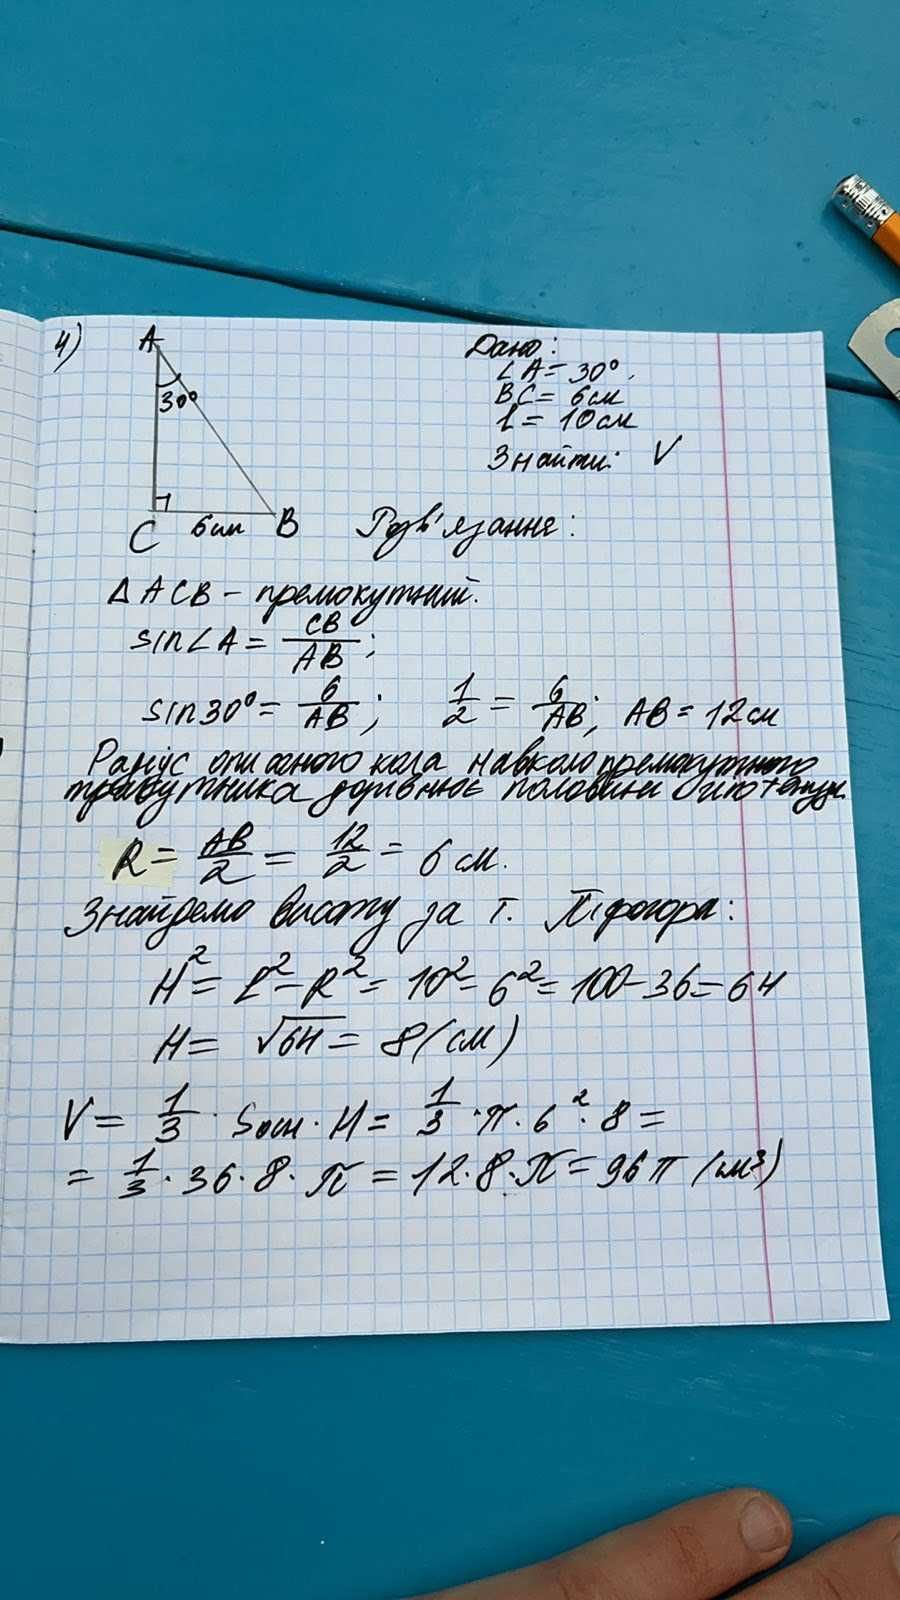 4)
A
30°
C 6см B
Дано:
∠A = 30°.
BC = 6см
l = 10см
Знайти: V
Розв'язання:
△ ACB – премокутний.
sin∠A = CB/AB;
sin30° = 6/AB; 1/2 = 6/AB; AB = 12см
Радіус описаного кола навколо премокутного
трикутника дорівнює половині гіпотенузи.
R = AB/2 = 12/2 = 6 см.
Знайдемо висоту за т. Піфагора:
H² = L² – R² = 10² – 6² = 100 – 36 = 64
H = √64 = 8 (см)
V = 1/3 · Sосн · H = 1/3 · π · 6² · 8 =
= 1/3 · 36 · 8 · π = 12 · 8 · π = 96π (см³)